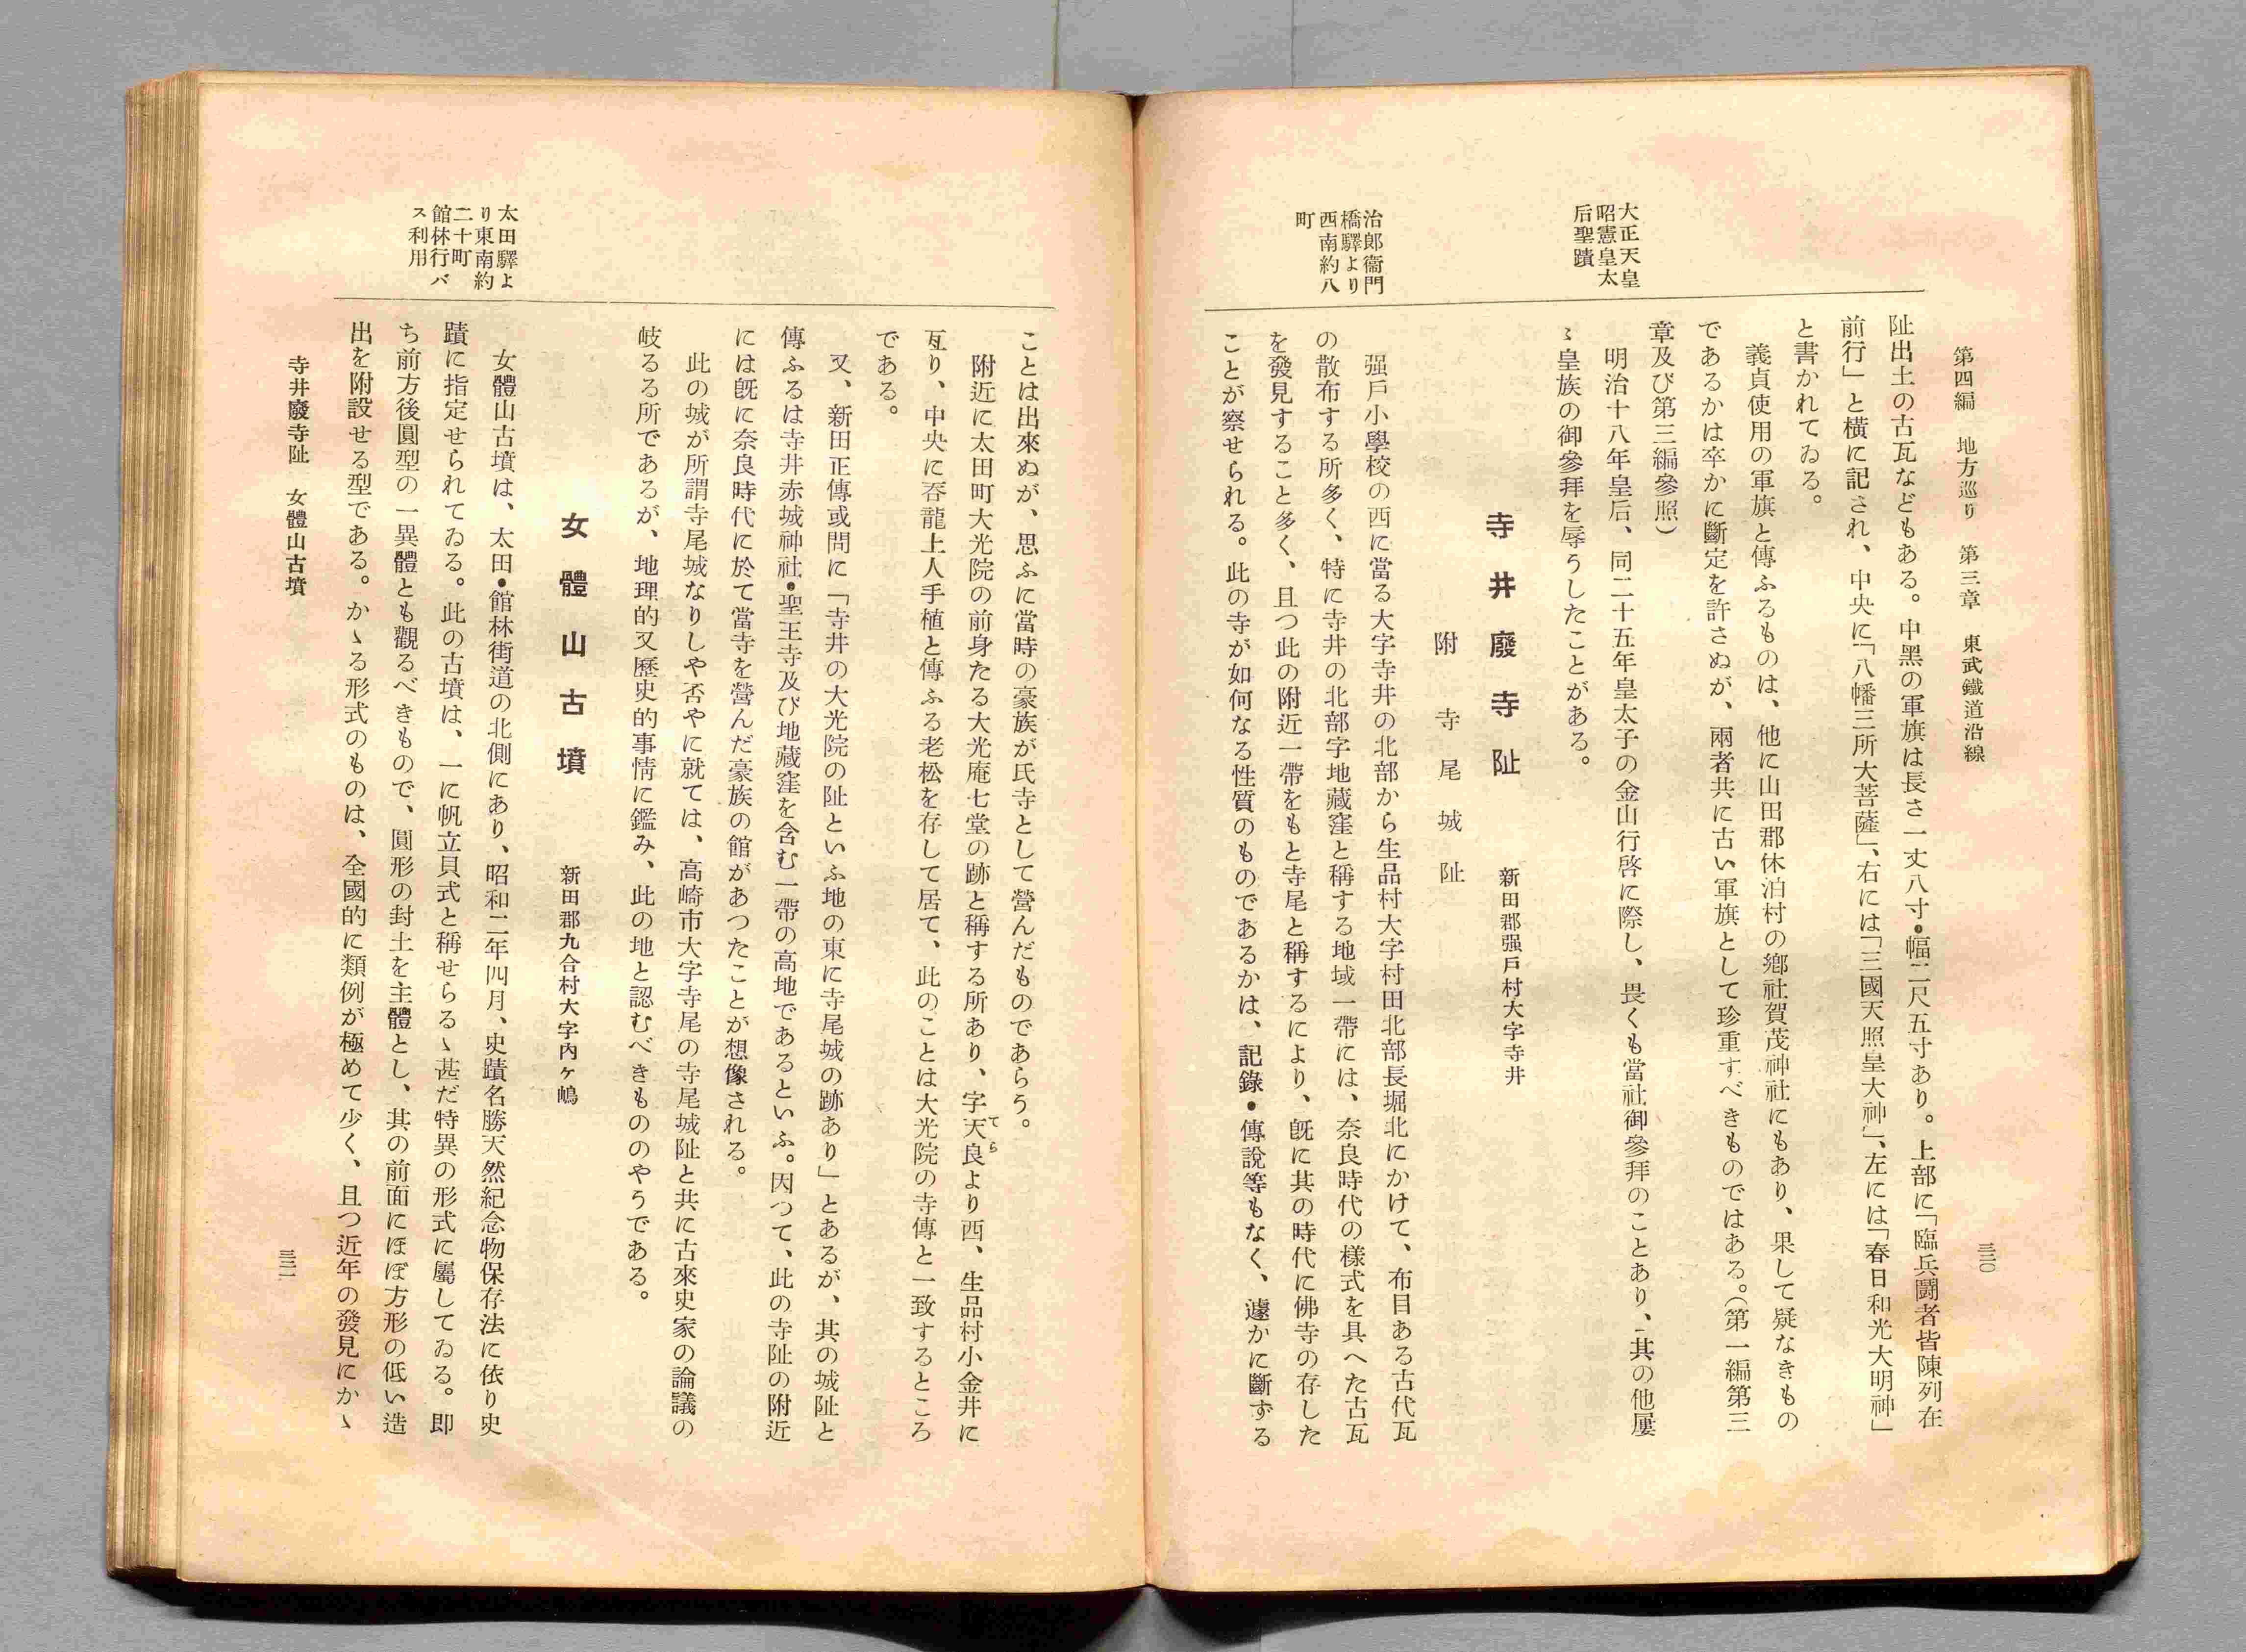 第四編　地方巡り　第三章　東武鐵道沿線
三三〇
大正天皇
昭憲皇太
后聖蹟
治郎衞門
橋驛より
西南約八
町
阯出土の古瓦などもある。中黑の軍旗は長さ一丈八寸・幅二尺五寸あり。上部に「臨兵鬪者皆陳列在
前行」と橫に記され、中央に「八幡三所大菩薩」、右には「三國天照皇大神」、左には「春日和光大明神」
と書かれてゐる。
義貞使用の軍旗と傳ふるものは、他に山田郡休泊村の鄕社賀茂神社にもあり、果して疑なきもの
であるかは卒かに斷定を許さぬが、兩者共に古い軍旗として珍重すべきものではある。（第一編第三
章及び第三編參照）
明治十八年皇后、同二十五年皇太子の金山行啓に際し、畏くも當社御參拜のことあり、其の他屢
〻皇族の御參拜を辱うしたことがある。
寺井廢寺阯　新田郡强戶村大字寺井
附　寺尾城阯
强戶小學校の西に當る大字寺井の北部から生品村大字村田北部長堀北にかけて、布目ある古代瓦
の散布する所多く、特に寺井の北部字地藏窪と稱する地域一帶には、奈良時代の樣式を具へた古瓦
を發見すること多く、且つ此の附近一帶をもと寺尾と稱するにより、旣に其の時代に佛寺の存した
ことが察せられる。此の寺が如何なる性質のものであるかは、記錄・傳說等もなく、遽かに斷ずる
太田驛よ
り東南約
二十町
館林行バ
ス利用
ことは出來ぬが、思ふに當時の豪族が氏寺として營んだものであらう。
附近に太田町大光院の前身たる大光庵七堂の跡と稱する所あり、字天良てらより西、生品村小金井に
亙り、中央に呑龍上人手植と傳ふる老松を存して居て、此のことは大光院の寺傳と一致するところ
である。
又、新田正傳或問に「寺井の大光院の阯といふ地の東に寺尾城の跡あり」とあるが、其の城阯と
傳ふるは寺井赤城神社・聖王寺及び地藏窪を含む一帶の高地であるといふ。因つて、此の寺阯の附近
には旣に奈良時代に於て當寺を營んだ豪族の館があつたことが想像される。
此の城が所謂寺尾城なりしや否やに就ては、高崎市大字寺尾の寺尾城阯と共に古來史家の論議の
岐るる所であるが、地理的又歷史的事情に鑑み、此の地と認むべきもののやうである。
女體山古墳　新田郡九合村大字內ヶ嶋
女體山古墳は、太田・館林街道の北側にあり、昭和二年四月、史蹟名勝天然紀念物保存法に依り史
蹟に指定せられてゐる。此の古墳は、一に帆立貝式と稱せらるゝ甚だ特異の形式に屬してゐる。卽
ち前方後圓型の一異體とも觀るべきもので、圓形の封土を主體とし、其の前面にほぼ方形の低い造
出を附設せる型である。かゝる形式のものは、全國的に類例が極めて少く、且つ近年の發見にかゝ
寺井廢寺阯　女體山古墳
三三一